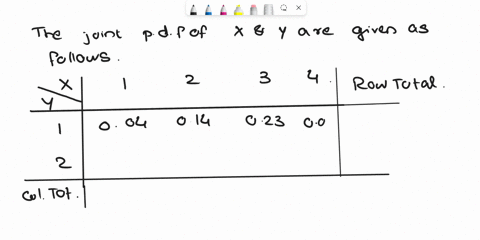 The joint p.d.f of X & Y are given as
follows.
X 1 2 3 4 Row Total.
Y
1 0.04 0.14 0.23 0.0
2
Col. Tot.